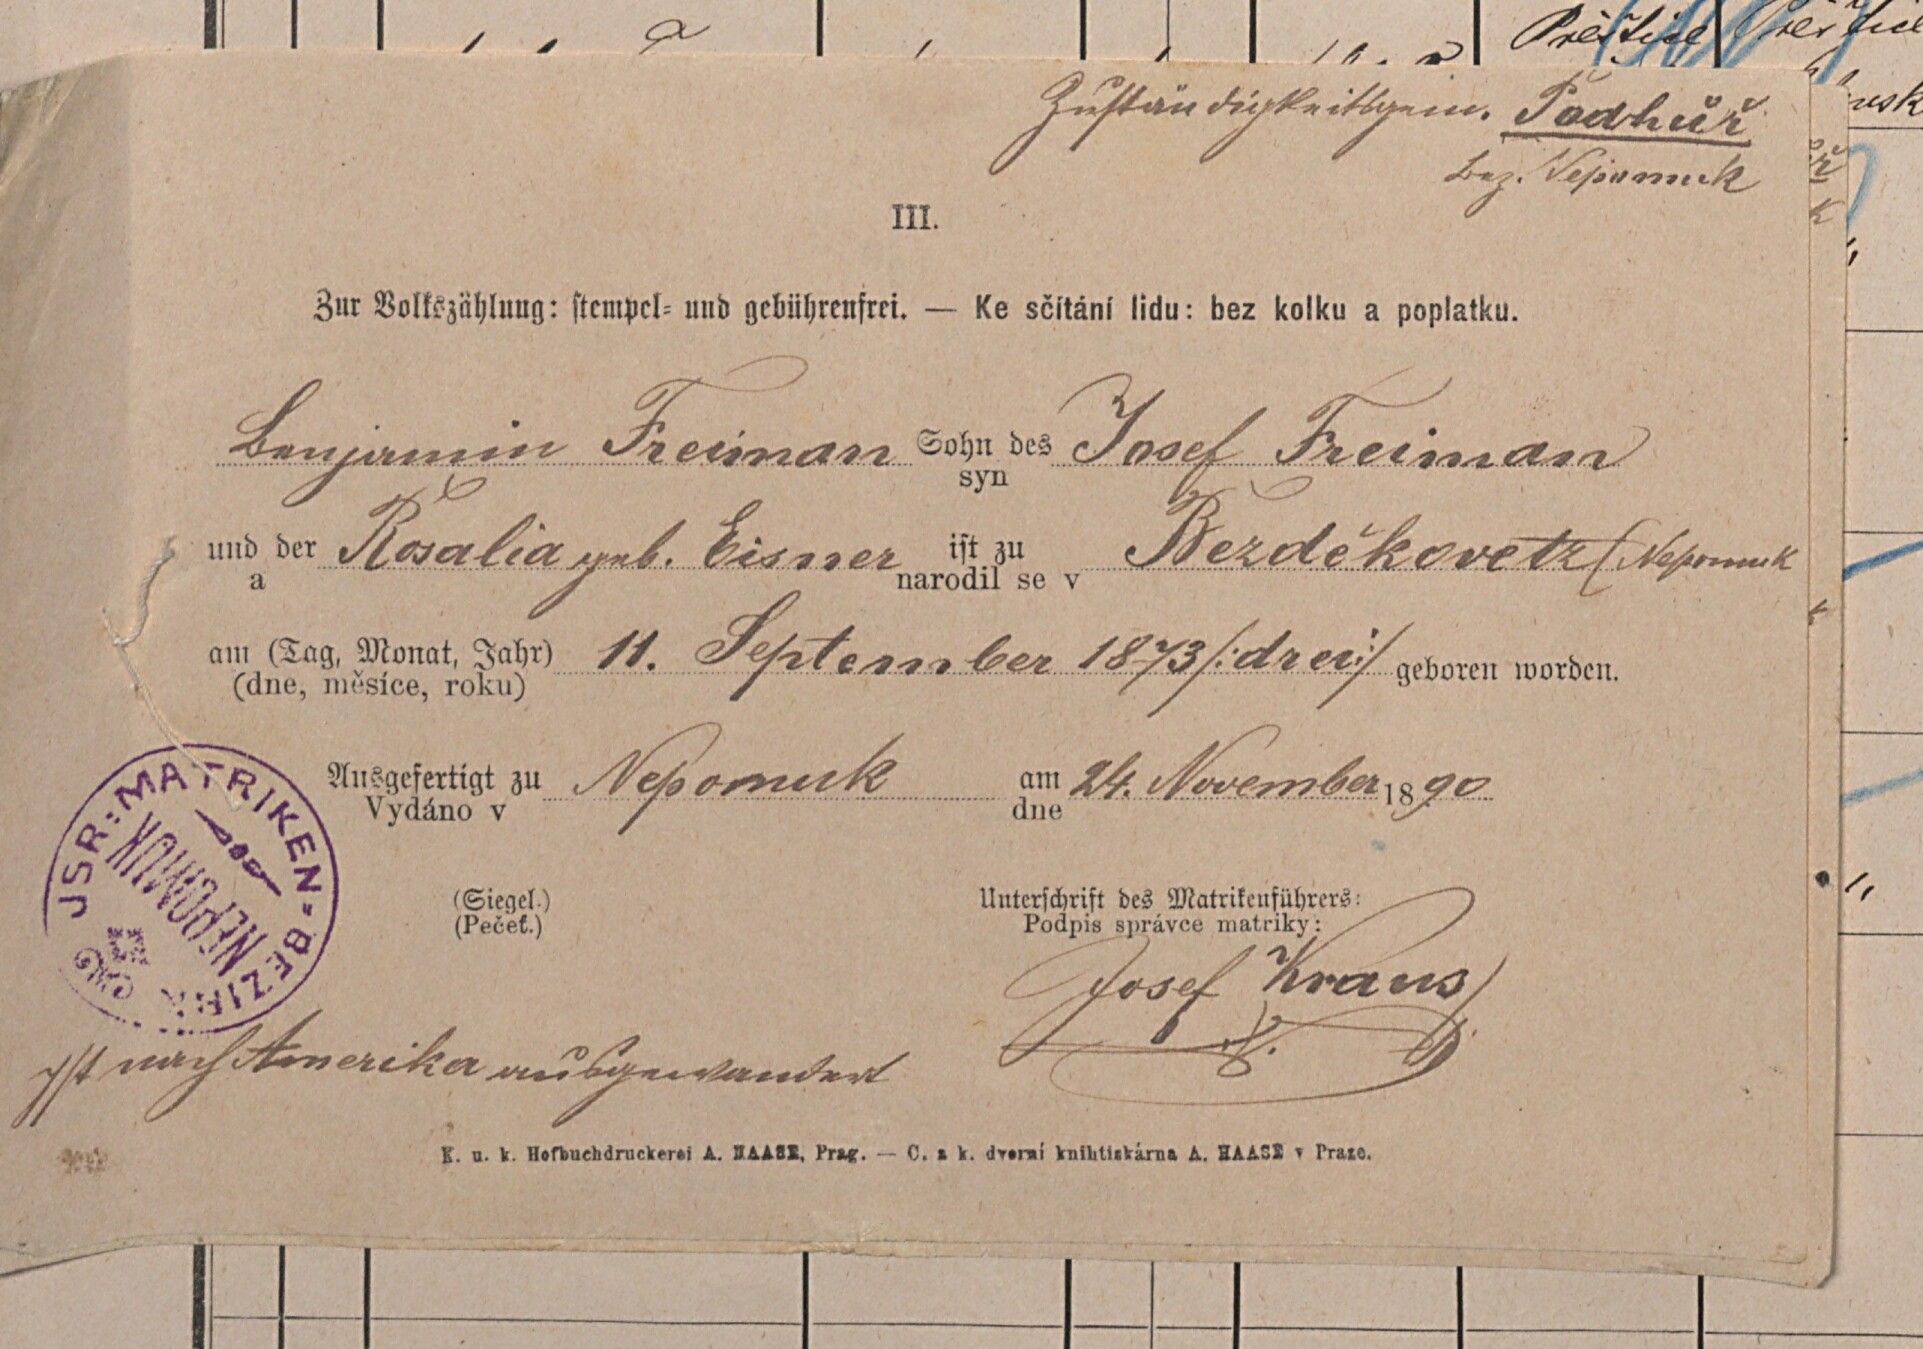 Přeštice Přeštice
Zuständigkeitsgem. Podhůř
Bez. Nepomuk
III.
Zur Volkszählung: stempel- und gebührenfrei. — Ke sčítání lidu: bez kolku a poplatku.
Benjamin Freiman Sohn des Josef Freiman
syn
und der Rosalia geb. Eisner ist zu Bezděkovetz (Nepomuk
a narodil se v
am (Tag, Monat, Jahr) 11. September 1873 /:drei:/ geboren worden.
(dne, měsíce, roku)
Ausgefertigt zu Nepomuk am 24. November 1890
Vydáno v dne
JSR: MATRIKEN-BEZIRK
NEPOMUK
(Siegel.) Unterschrift des Matrikenführers:
(Pečeť.) Podpis správce matriky:
Josef Kraus
ist nach Amerika ausgewandert
K. u. k. Hofbuchdruckerei A. HAASE, Prag. — C. a k. dvorní knihtiskárna A. HAASE v Praze.